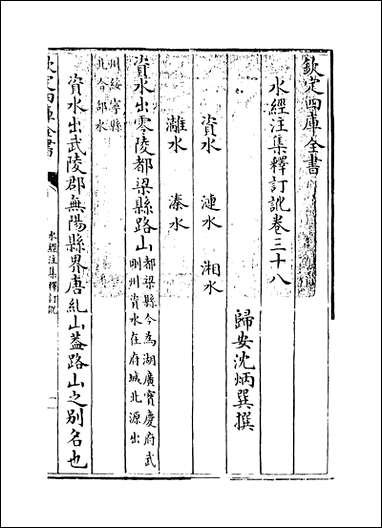 欽定四庫全書
水經注集釋訂訛卷三十八
歸安沈炳巽撰
資水 漣水 湘水
灕水 溱水
資水出零陵都梁縣路山都梁縣今為湖廣寳慶府武
剛州資水在府城北源出
州綏寧縣
北合邵水
資水出武陵郡無陽縣界唐糺山蓋路山之別名也
欽定四庫全書
水經注集釋訂訛
一